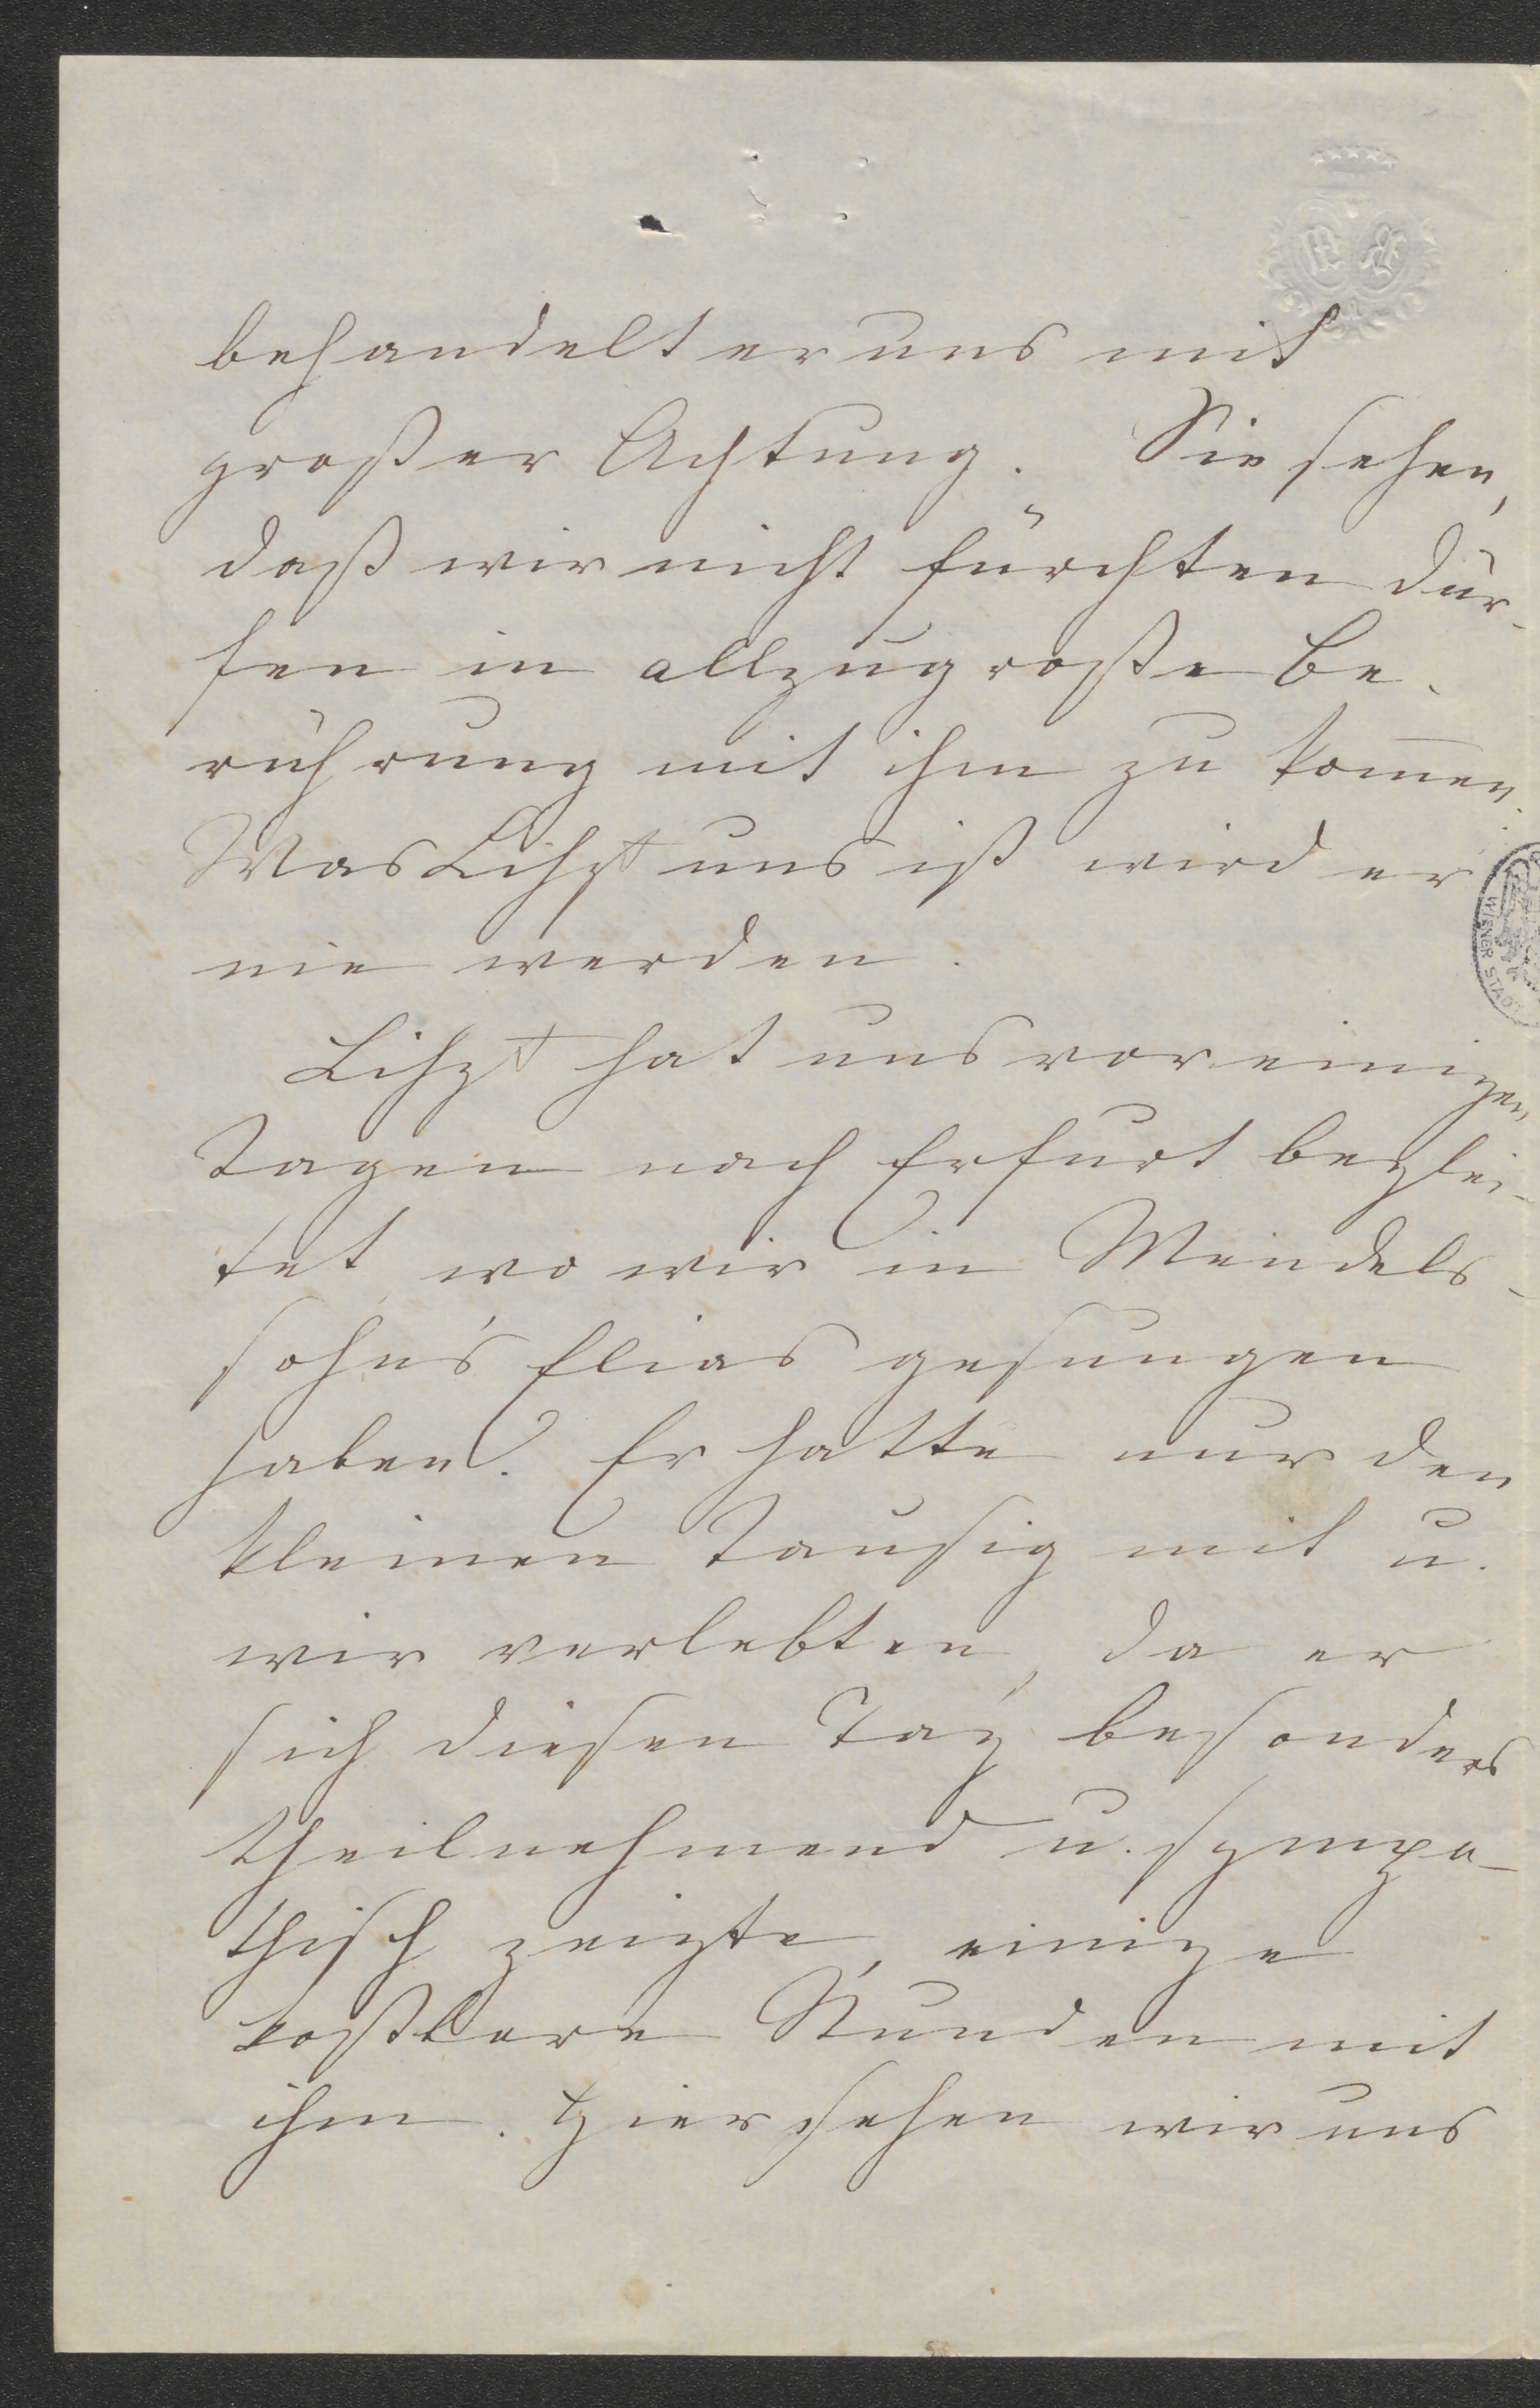 behandelt er uns mit
großer Achtung. Sie sehen,
daß wir nicht fürchten dür-
fen in allzugroße Be-
rührung mit ihm zu kom̅en.
Was Liszt uns ist wird er
nie werden.
WIENER STADT
Liszt hat uns vor einigen
Tagen nach Erfurt beglei-
tet, wo wir in Mendels-
sohn's Elias gesungen
haben. Er hatte nur den
kleinen Tausig mit u.
wir verlebten, da er
sich diesen Tag besonders
theilnehmend u. sympa-
thisch zeigte, einige
kostbare Stunden mit
ihm. Hier sehen wir uns